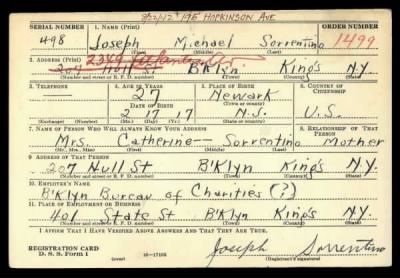 8/22/42 + 195 HOPKINSON AVE
SERIAL NUMBER 1. NAME (Print) ORDER NUMBER
498 Joseph Michael Sorrentino 1499
(First) (Middle) (Last)
2. ADDRESS (Print) 2349
207 Hull St B'Klyn King's N.Y.
(Number and street or R. F. D. number) (Town) (County) (State)
3. TELEPHONE 4. AGE IN YEARS 5. PLACE OF BIRTH 6. COUNTRY OF CITIZENSHIP
27 Newark
DATE OF BIRTH (Town or county)
2 17 17 N.J. U.S.
(Exchange) (No.) (Mo.) (Day) (Yr.) (State or country)
7. NAME OF PERSON WHO WILL ALWAYS KNOW YOUR ADDRESS 8. RELATIONSHIP OF THAT PERSON
Mrs. Catherine -- Sorrentino Mother
(Mr., Mrs., Miss) (First) (Middle) (Last)
9. ADDRESS OF THAT PERSON
207 Hull St B'Klyn King's N.Y.
(Number and street or R. F. D. number) (Town) (County) (State)
10. EMPLOYER'S NAME
B'Klyn Bureau of Charities (?)
11. PLACE OF EMPLOYMENT OR BUSINESS
401 State St B'Klyn King's N.Y.
(Number and street or R. F. D. number) (Town) (County) (State)
I AFFIRM THAT I HAVE VERIFIED ABOVE ANSWERS AND THAT THEY ARE TRUE.
REGISTRATION CARD
D. S. S. Form 1 16—17105 Joseph Sorrentino
(Registrant's signature)